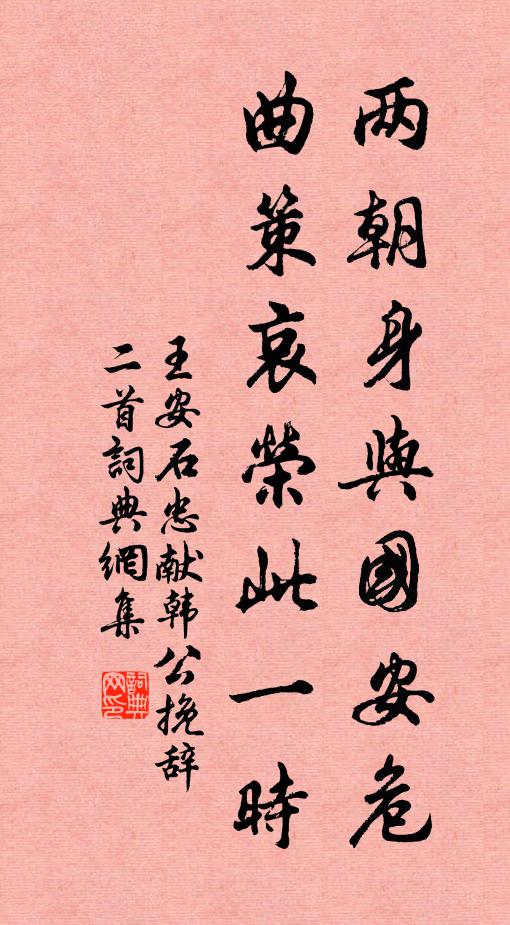 两朝身與國安危
曲策哀榮此一時
王安石忠献韩公挽辞
二首詞典網集
詞典網印